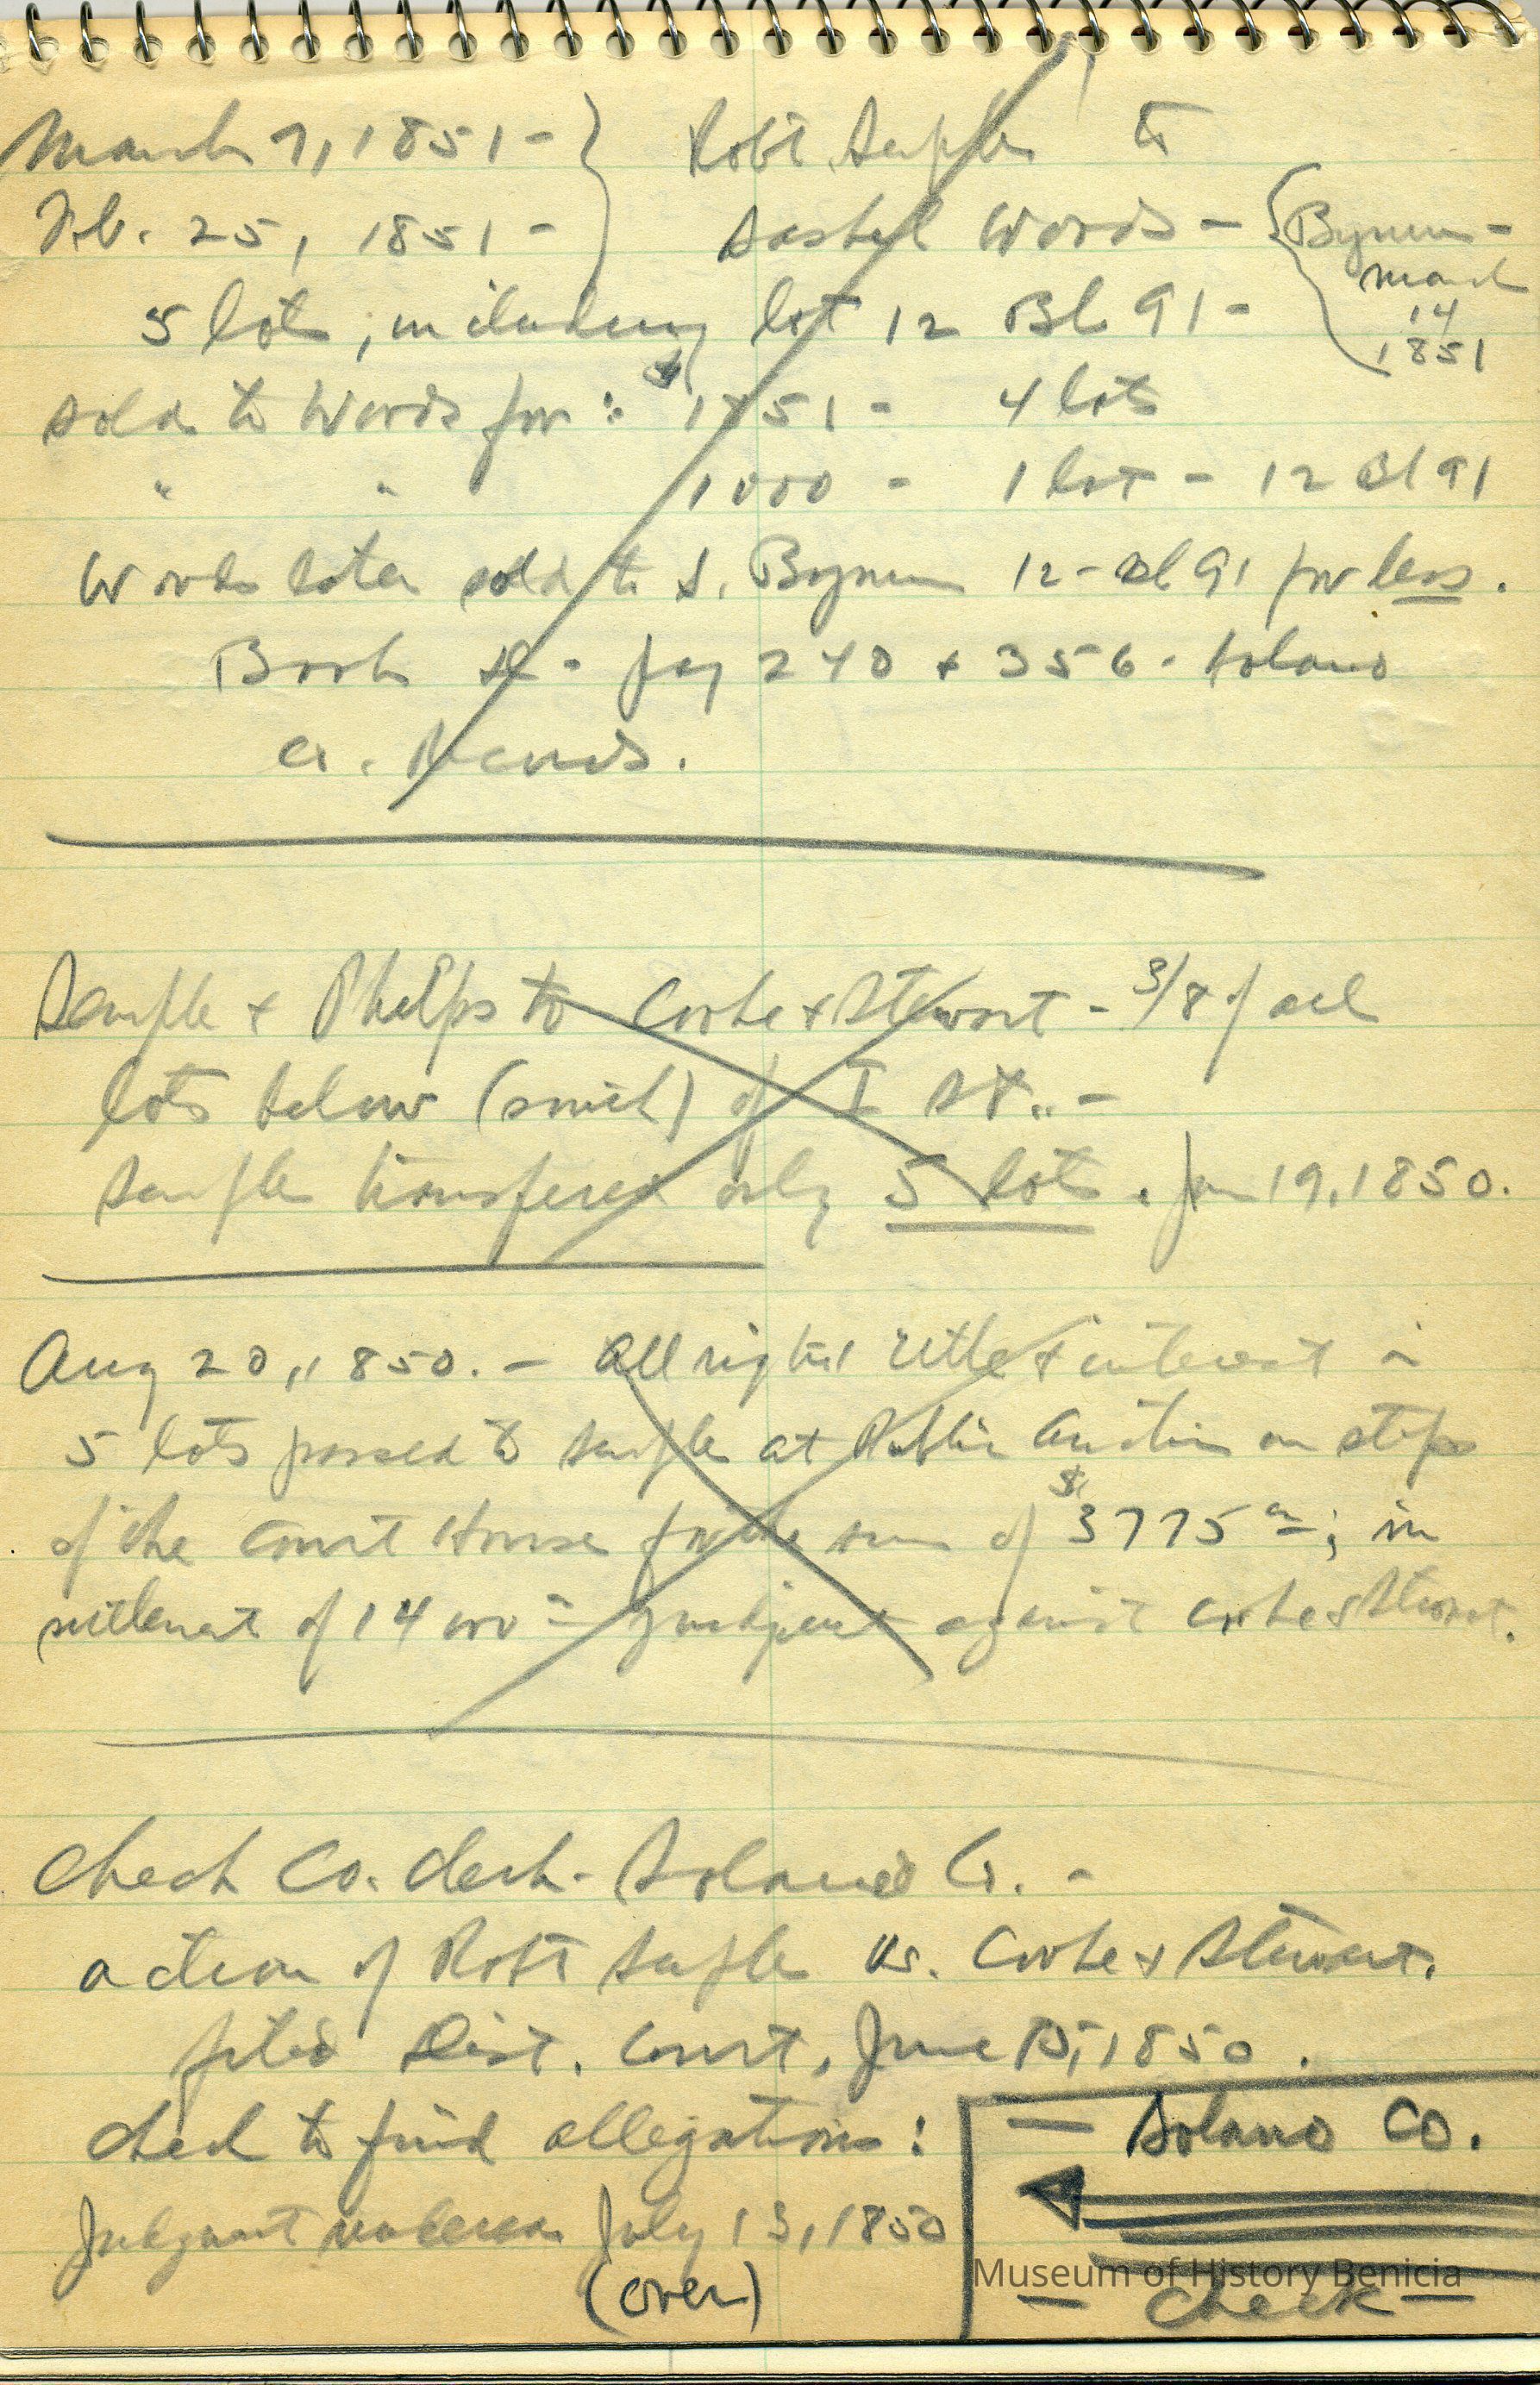 March 7, 1851 - Robt Semple to
Feb. 25, 1851 - Woods - Bynum -
March
14
1851
5 lots, including lot 12 Bl 91 -
sold to Woods for: $1751 - 4 lots
" " 1000 - 1 lot - 12 Bl 91
Woods later sold to S. Bynum 12 - Bl 91 for less.
Book - pag 240 + 356. Solano
Co. Records.
Semple & Phelps to Cooke & Stewart - 3/8 of all
lots below (south) of I St. -
Semple transfered only 5 lots. Jan 19, 1850.
Aug 20, 1850. - All right title & interest in
5 lots passed to Semple at Public Auction on steps
of the Court House for the sum of $3775 00; in
settlement of 1400 judgment against Cooke & Stewart.
Check Co. Clerk - Solano Co. -
action of Robt Semple vs. Cooke & Stewart.
filed Dist. Court, June 15, 1850.
check to find allegations:
Judgment rendered July 13, 1850
(over)
- Solano Co.
- Check -
Museum of History Benicia